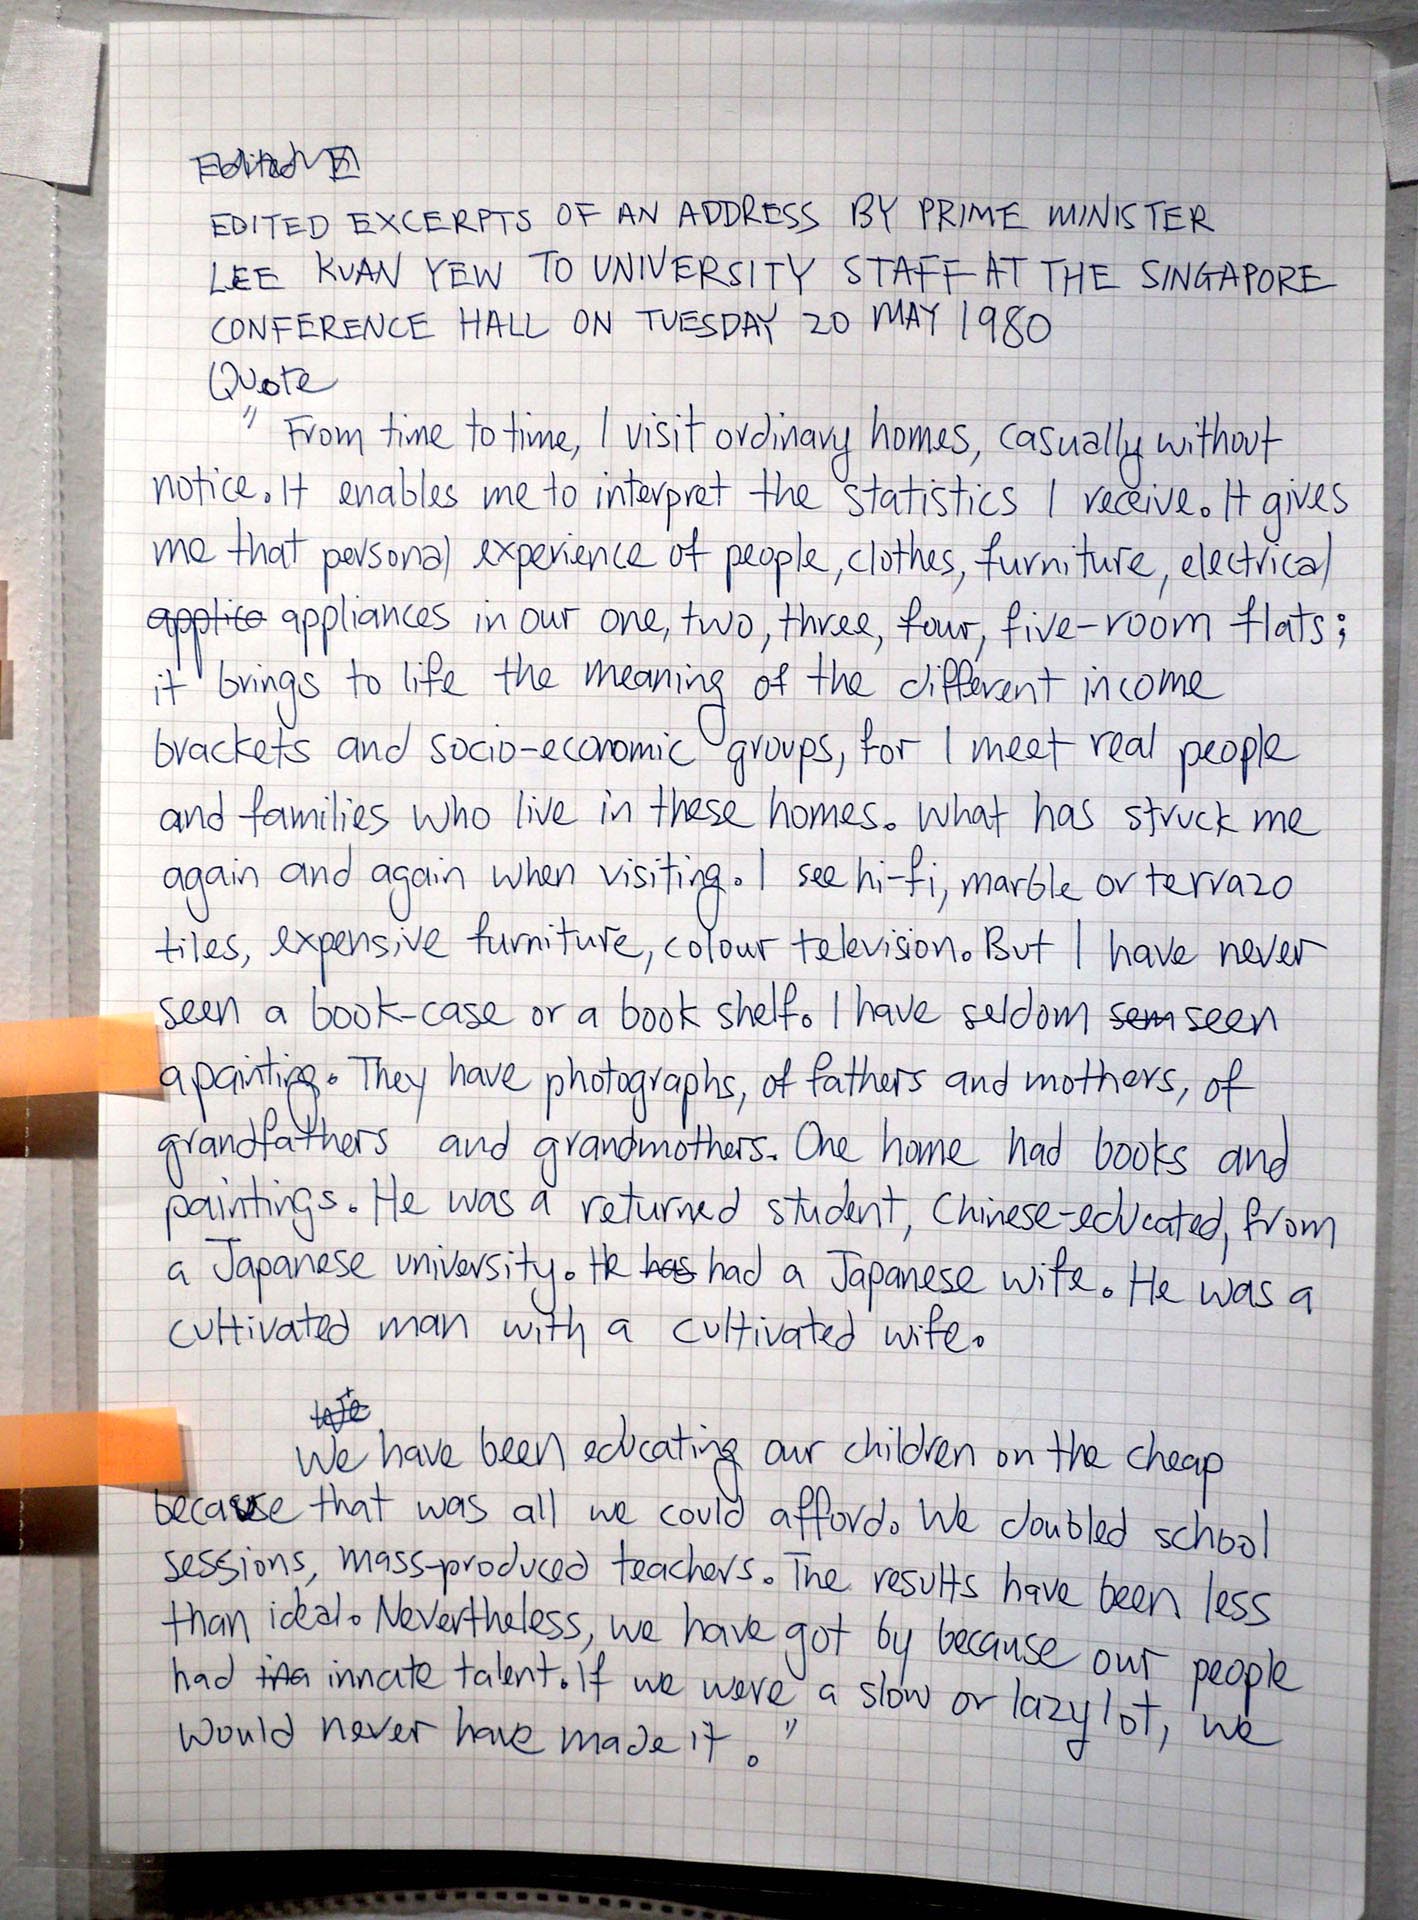 Edited E
EDITED EXCERPTS OF AN ADDRESS BY PRIME MINISTER
LEE KUAN YEW TO UNIVERSITY STAFF AT THE SINGAPORE
CONFERENCE HALL ON TUESDAY 20 MAY 1980
Quote
" From time to time, I visit ordinary homes, casually without
notice. It enables me to interpret the statistics I receive. It gives
me that personal experience of people, clothes, furniture, electrical
applica appliances in our one, two, three, four, five-room flats;
it brings to life the meaning of the different income
brackets and socio-economic groups, for I meet real people
and families who live in these homes. What has struck me
again and again when visiting. I see hi-fi, marble or terrazo
tiles, expensive furniture, colour television. But I have never
seen a book-case or a book shelf. I have seldom sem seen
a painting. They have photographs, of fathers and mothers, of
grandfathers and grandmothers. One home had books and
paintings. He was a returned student, Chinese-educated, from
a Japanese university. He has had a Japanese wife. He was a
cultivated man with a cultivated wife.
We
We have been educating our children on the cheap
because that was all we could afford. We doubled school
sessions, mass-produced teachers. The results have been less
than ideal. Nevertheless, we have got by because our people
had ina innate talent. If we were a slow or lazy lot, we
would never have made it. "